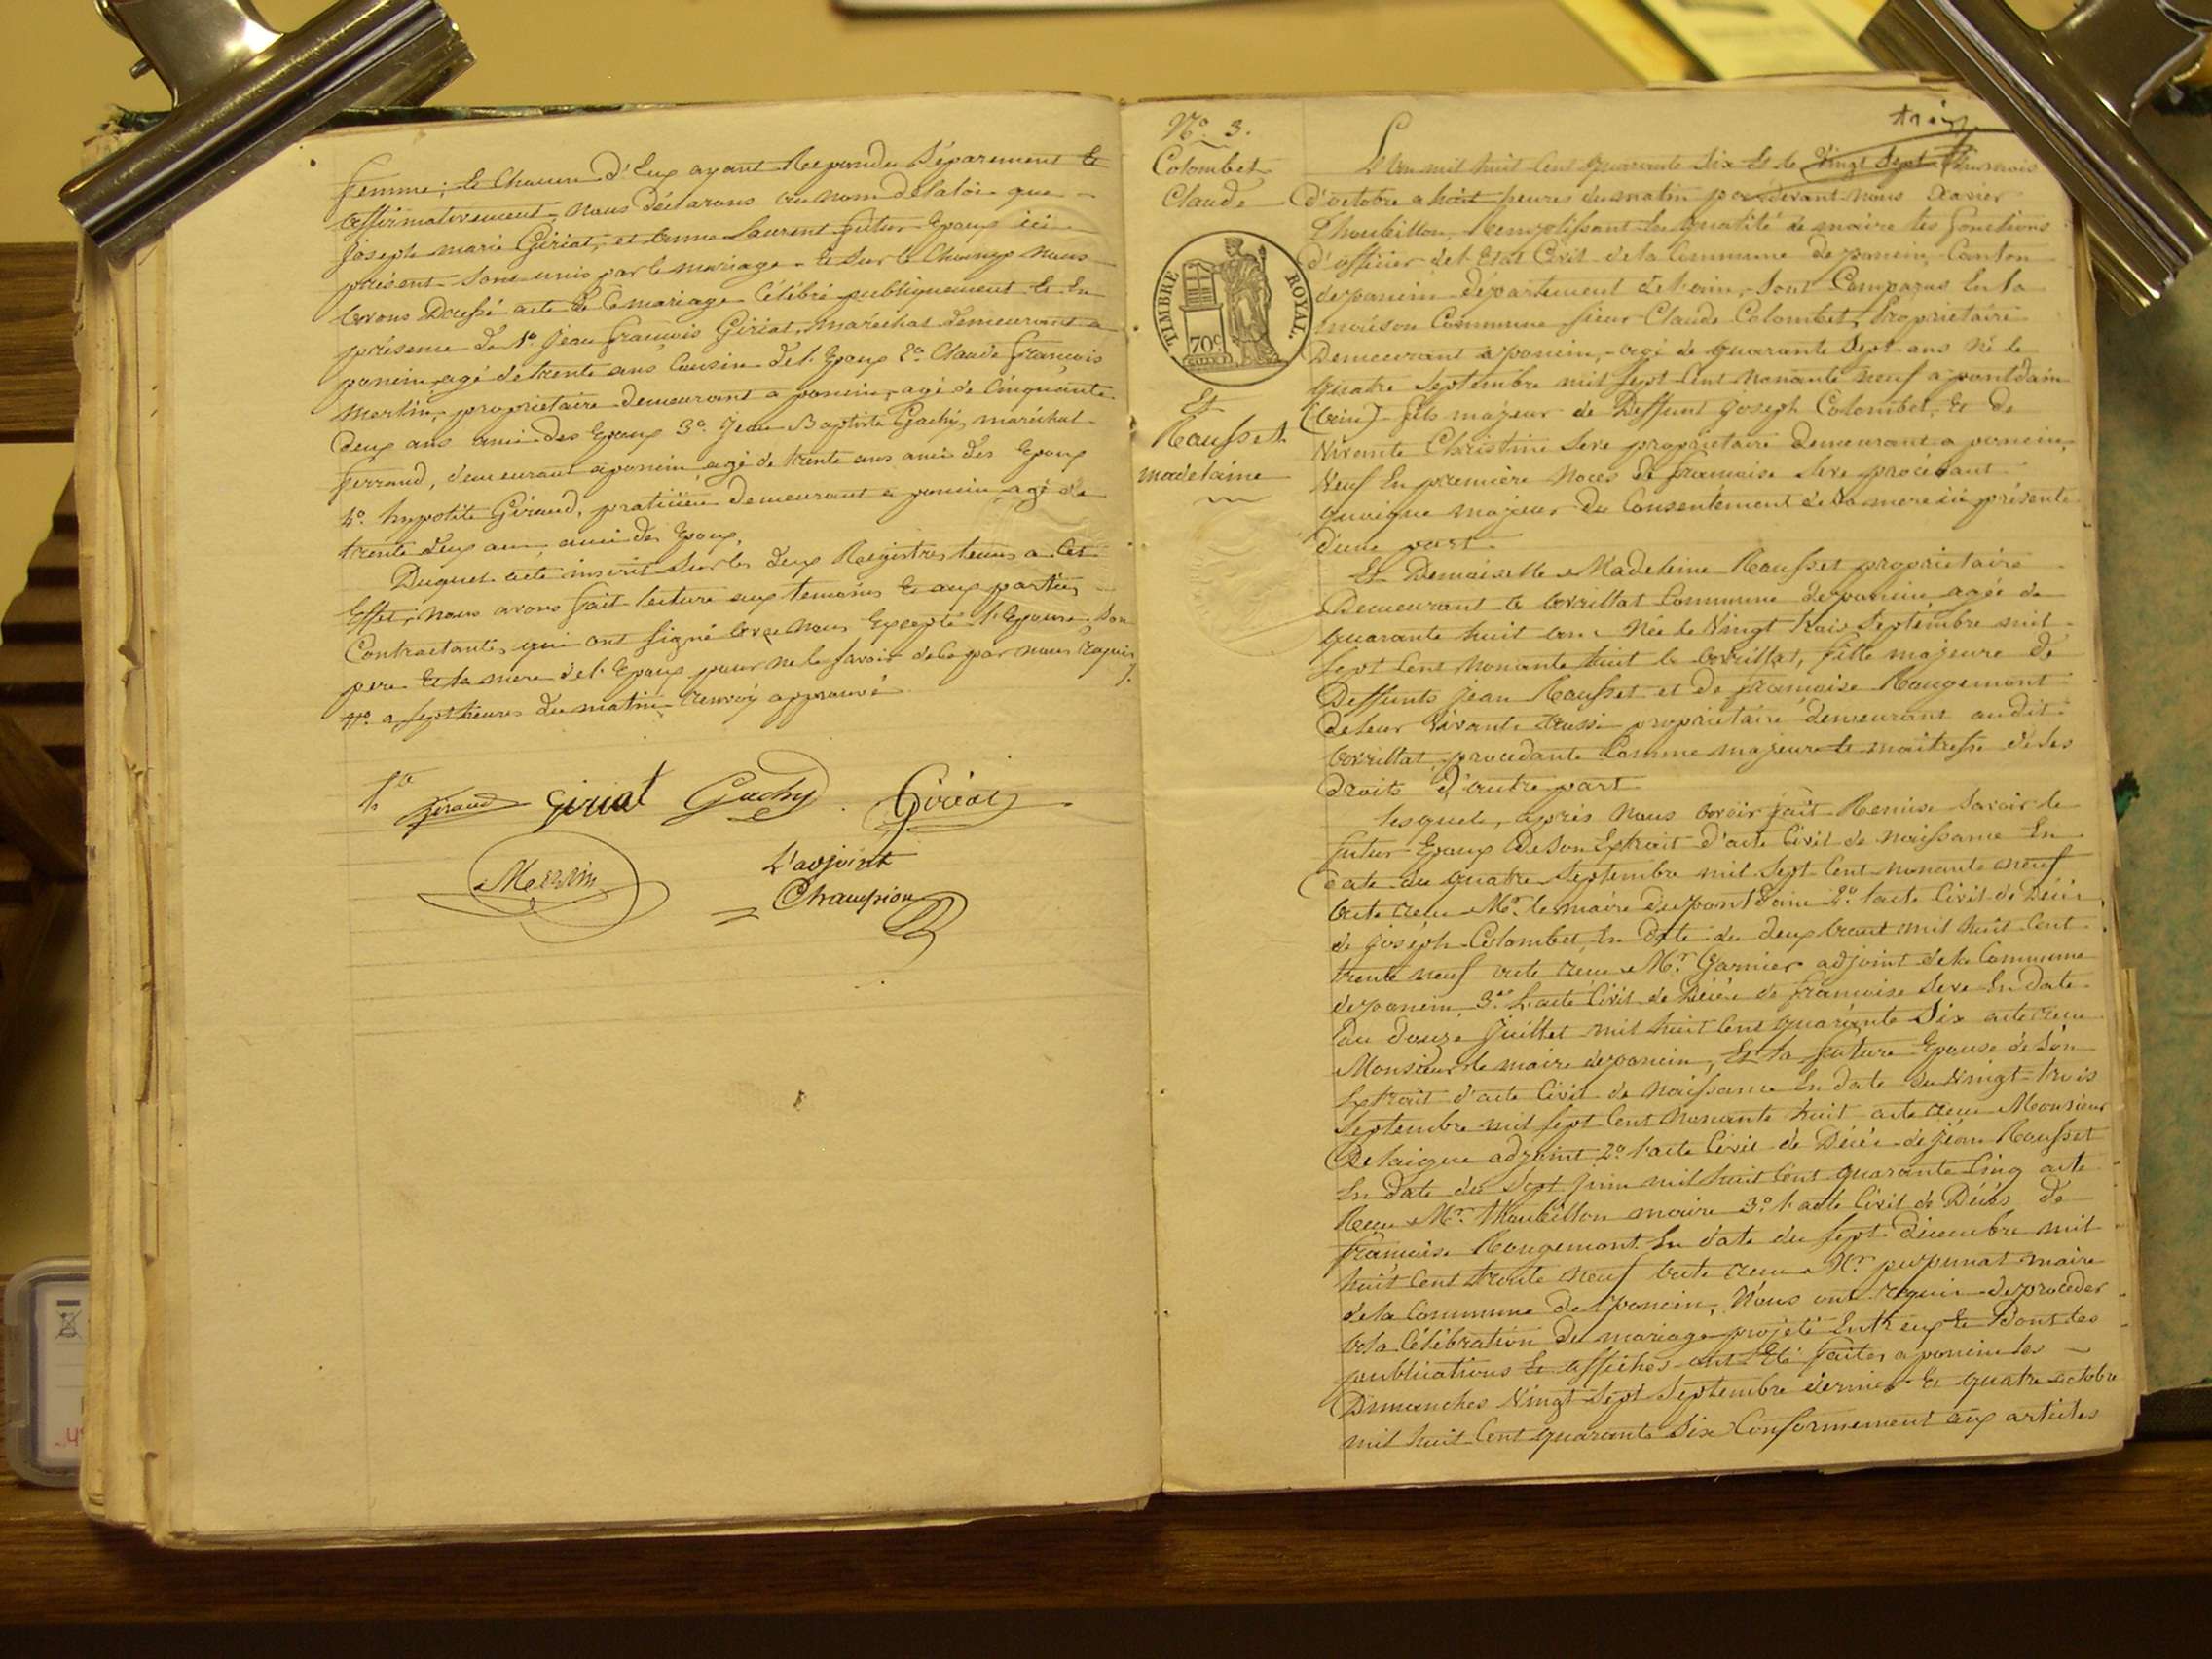 femme; Et Chacun d'Eux ayant Repondu Séparement Et
affirmativement, nous déclarons au nom de la loi que
joseph marie Giriat, et anne Laurent futur Epoux ici
présent sont unis par le mariage. Et sur le Champ nous
avons Dressé acte de Ce mariage Célébré publiquement Et En
présence de 1º jean françois Giriat, maréchal demeurant a
poncin, agé de trente ans Cousin de l'Epoux 2º Claude françois
merlin, propriétaire demeurant a poncin, agé de Cinquante
Deux ans ami des Epoux 3º jean Baptiste Gachy, maréchal
ferrand, demeurant a poncin agé de trente ans ami des Epoux
4º hypolite Giraud, praticien demeurant a poncin agé de
trente deux ans, ami des Epoux.
Duquel acte inscrit sur les deux Registres tenus a Cet
Effet, nous avons fait lecture aux temoins Et aux parties
Contractantes, qui ont signé avec nous Excepté l'Epouse, Son
pere Et la mere de l'Epoux pour ne le savoir de Ce par nous requis
a sept heures du matin renvoy approuvé
Giraud Giriat Gachy Giriat
Merlin
L'adjoint
Champion
Nº 3.
Colombet
Claude
TIMBRE ROYAL.
70c
Et
Rousset
madelaine
L'an mil huit Cent quarante Six Et le vingt Sept du mois
d'octobre a huit heures du matin par devant nous Xavier
Thoubillon, Remplissant la qualité de maire les fonctions
d'officier de l'Etat Civil de la Commune de poncin, Canton
de poncin département de l'ain, Sont Comparus En la
maison Commune sieur Claude Colombet, propriétaire
Demeurant a poncin, agé de quarante Sept ans né le
quatre Septembre mil sept Cent nonante neuf a pontdain
(ain) fils majeur de Deffunt joseph Colombet, Et de
Vivante Christine Seve propriétaire demeurant a poncin,
Veuf En premiere noces de françoise Seve procédant
quoique majeur du Consentement de Sa mere ici présente
d'une part
Et Demoiselle Madeleine Rousset propriétaire
Demeurant a avrillat Commune de poncin agée de
quarante huit ans née le Vingt trois Septembre mil
Sept Cent nonante huit a avrillat, fille majeure de
Deffunts jean Rousset et de françoise Rougemont
de leur Vivant aussi propriétaire demeurant au dit
avrillat, procedante Comme majeure et maitresse de Ses
Droits d'autre part
lesquels, après nous avoir fait Remise Savoir le
futur Epoux de Son Extrait d'acte Civil de naissance En
date du quatre Septembre mil Sept Cent nonante neuf
acte reçu Mr. le maire du pontDain 2º l'acte Civil de Décès
de joseph Colombet, En Date du deux août mil huit Cent
trente neuf acte reçu Mr. Garnier adjoint de la Commune
de poncin, 3º L'acte Civil de Décès de françoise Seve En date
du douze juillet mil huit Cent quarante Six acte reçu
Monsieur le maire de poncin, Et la future Epouse de Son
Extrait d'acte Civil de naissance En date du Vingt trois
Septembre mil sept Cent nonante huit acte reçu Monsieur
Delaigue adjoint 2º l'acte Civil de Décès de jean Rousset
En date du Sept juin mil huit Cent quarante Cinq acte
Reçu Mr. Thoubillon maire 3º l'acte Civil de Décès de
françoise Rougemont En date du sept décembre mil
huit Cent trente neuf acte reçu Mr maire
de la Commune de poncin, Nous ont requis de procéder
a la Célébration du mariage projeté Entr'eux Et dont les
publications Et affiches ont Eté faites a poncin les
Dimanches Vingt Sept Septembre dernier Et quatre octobre
mil huit Cent quarante Six Conformement aux articles